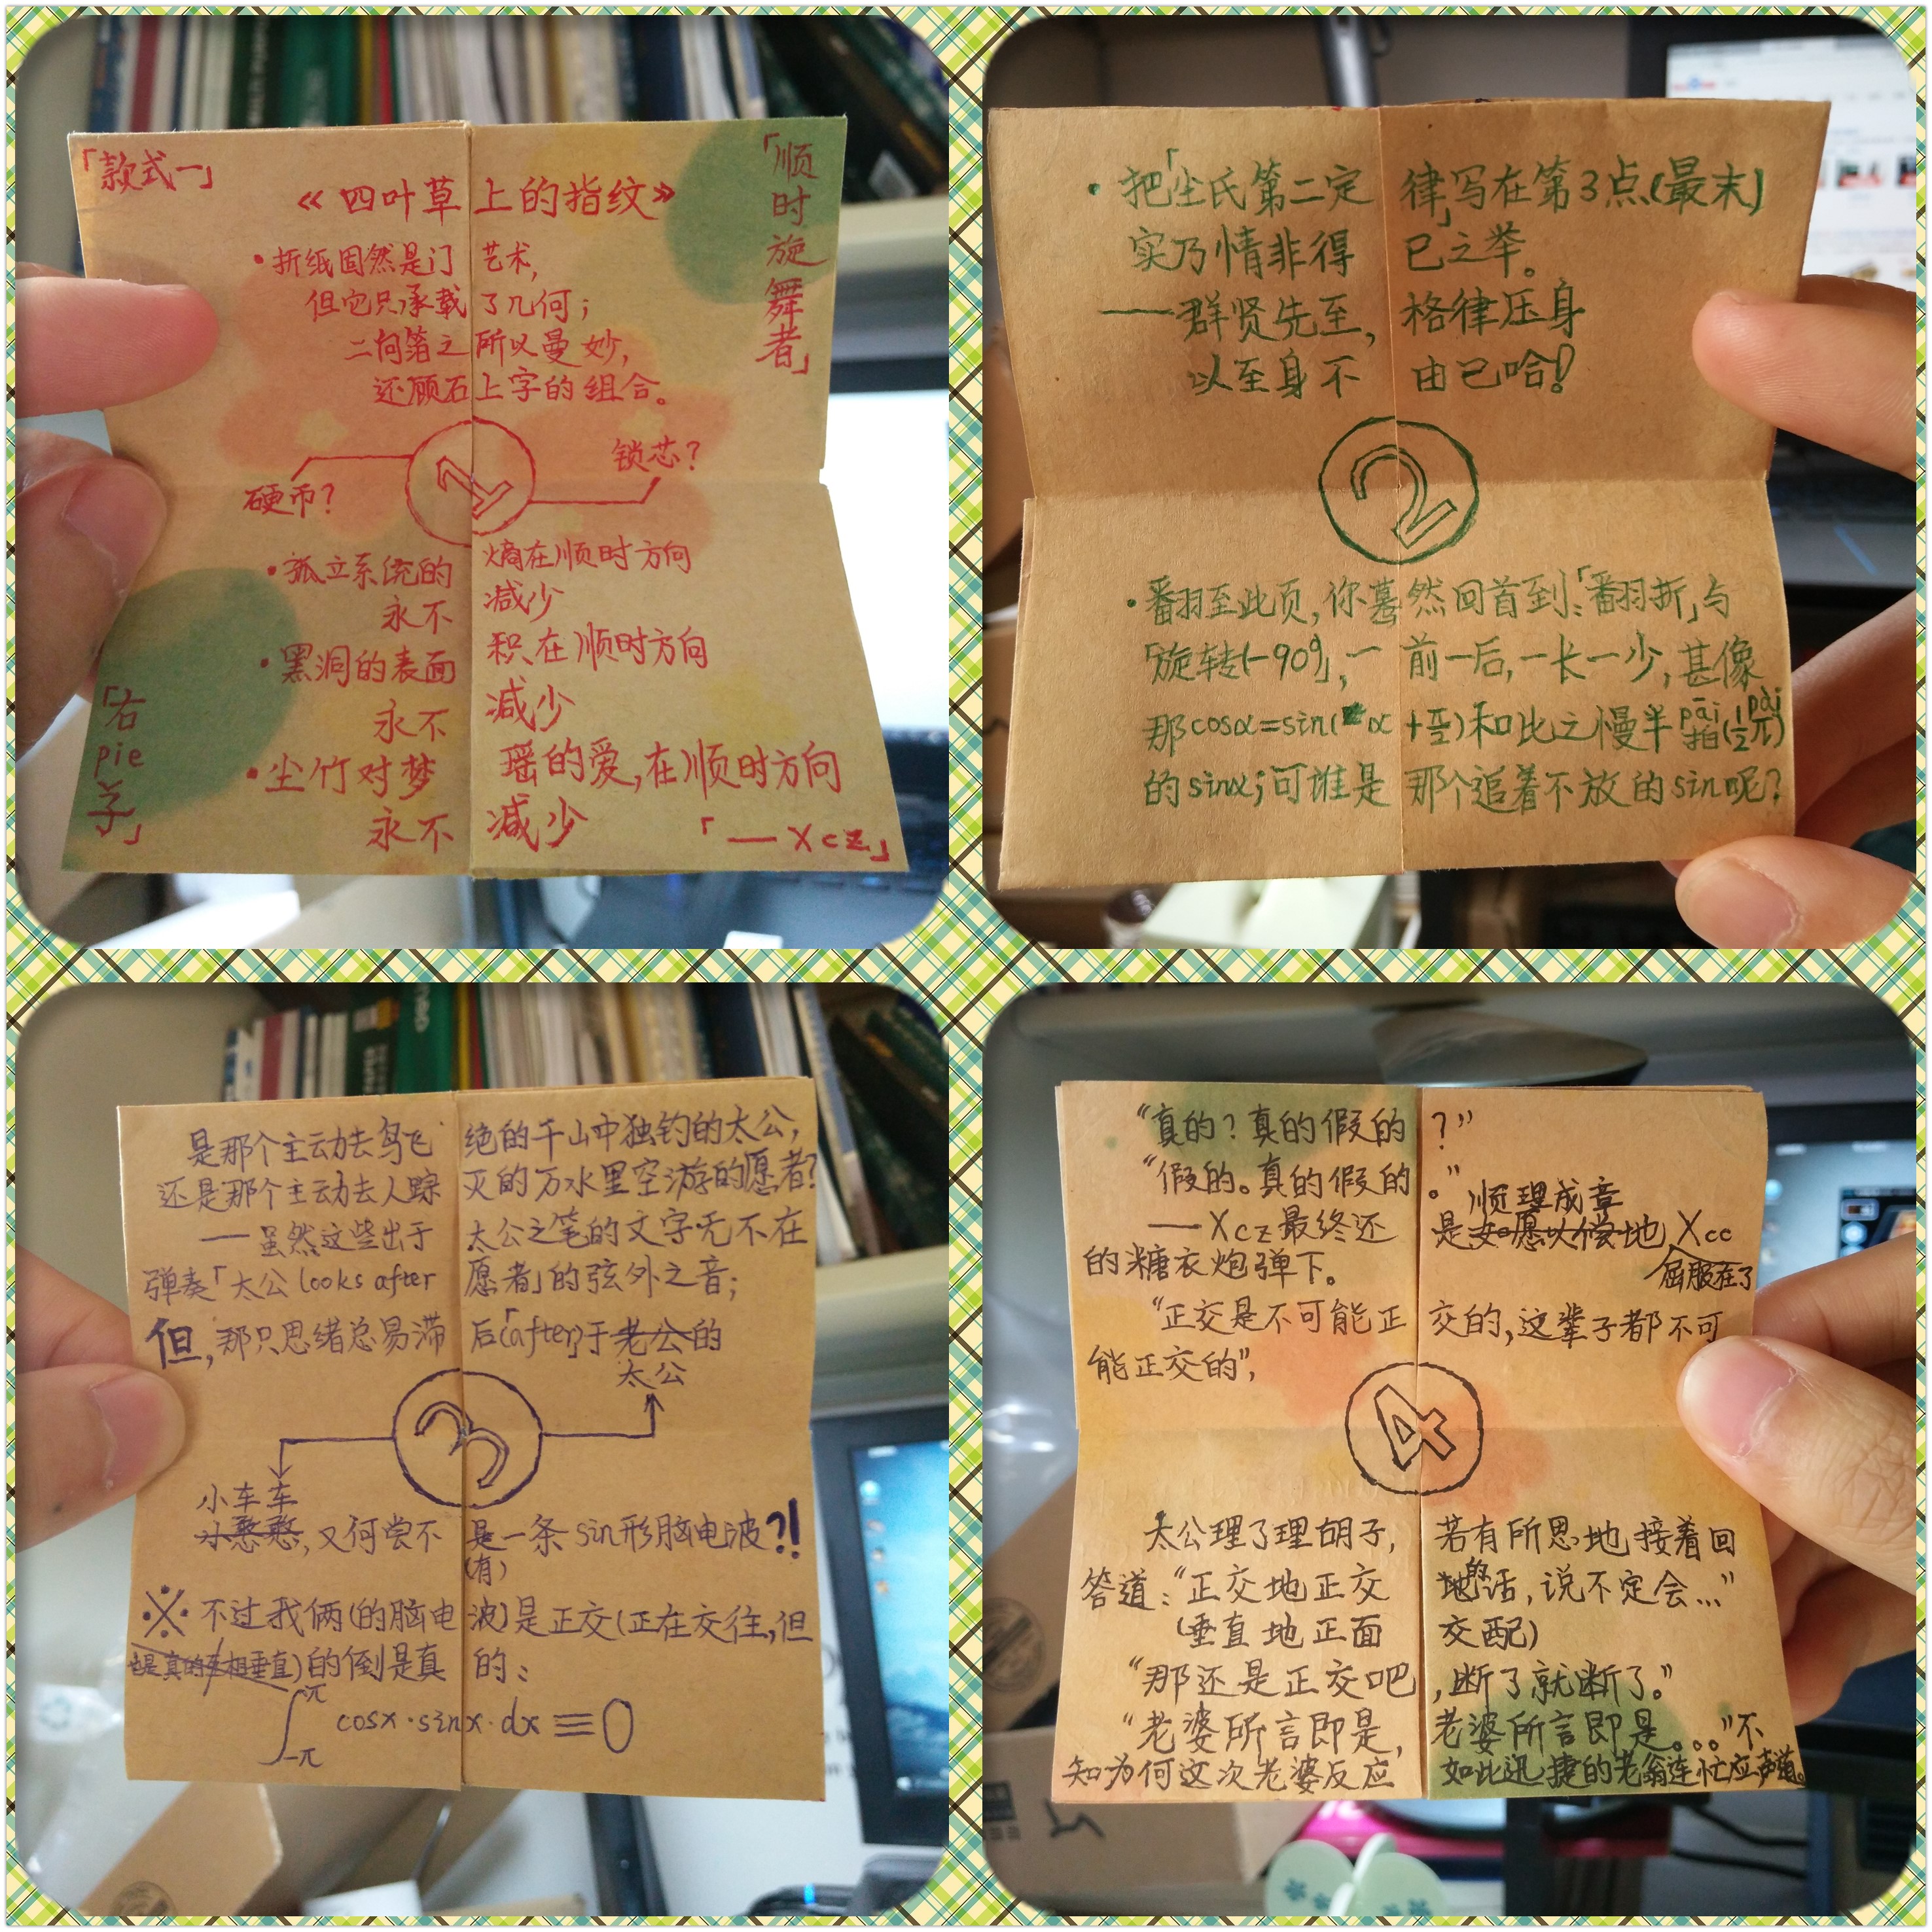 「款式一」
《四叶草上的指纹》
「顺时旋舞者」
•折纸固然是门艺术,
但它只承载了几何;
二向箔之所以曼妙,
还顾石上字的组合。
锁芯?
1
硬币?
•孤立系统的熵在顺时方向
永不减少
•黑洞的表面积在顺时方向
永不减少
•尘竹对梦瑶的爱,在顺时方向
永不减少
「右pie子」
「—Xcz」
•把「尘氏第二定律」写在第3点(最末)
实乃情非得已之举。
——群贤先至,格律压身
以至身不由已哈!
2
•翻至此页,你蓦然回首到:「翻折」与
「旋转(-90°)」,一前一后,一长一少,甚像
那cosα=sin(α+π/2)和比之慢半拍(½π)
pāi pài
的sinα;可谁是那个追着不放的sin呢?
是那个主动去鸟飞绝的千山中独钓的太公,
还是那个主动去人踪灭的万水里空游的愿者?
—虽然这些出于太公之笔的文字无不在
弹奏「太公looks after愿者」的弦外之音;
但,那只思绪总易滞后「(after)」于老公的
太公
3
小车车
小憨憨,又何尝不是一条sin形脑电波?!
(有)
※不过我俩(的脑电波)是正交(正在交往,但
也是真的互相垂直)的倒是真的:
∫_{-π}^{π} cosx·sinx·dx≡0
“真的?真的假的?”
“假的。真的假的。”
顺理成章
——Xcz最终还是如愿以偿地Xcc
屈服在了
的糖衣炮弹下。
“正交是不可能正交的,这辈子都不可
能正交的”,
4
太公理了理胡子,若有所思地接着回
答道:“正交地正交地的话,说不定会...”
(垂直地正面交配)
“那还是正交吧,断了就断了。”
“老婆所言即是,老婆所言即是。。。”不
知为何这次老婆反应如此迅捷的老翁连忙应声道。